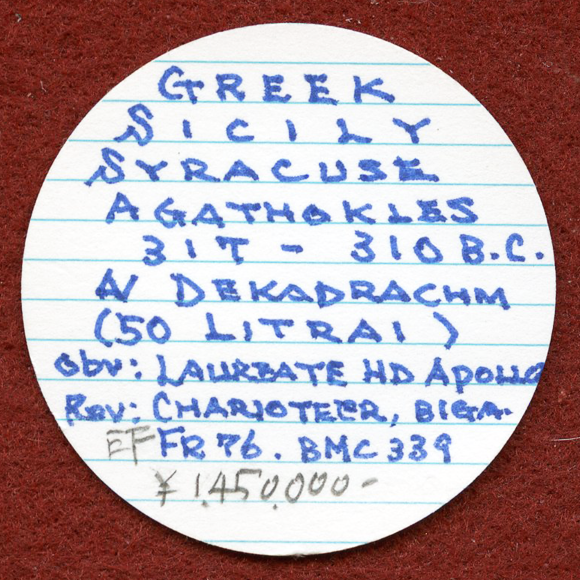 GREEK
SICILY
SYRACUSE
AGATHOKLES
317 - 310 B.C.
AV DEKADRACHM
(50 LITRAI)
Obv: LAUREATE HD APOLLO
Rev: CHARIOTEER, BIGA.
EF FR 76. BMC 339
¥ 1,450,000-